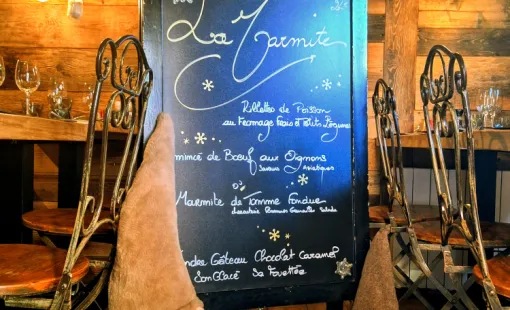 La Marmite
Rillettes de Poisson
au Fromage Frais et Petits Légumes
mincé de Bœuf aux Oignons
Saveurs Asiatiques
Marmite de Tomme Fondue
Salade
ndre Gâteau Chocolat Caramel
Son Glacé Sa Fouettée